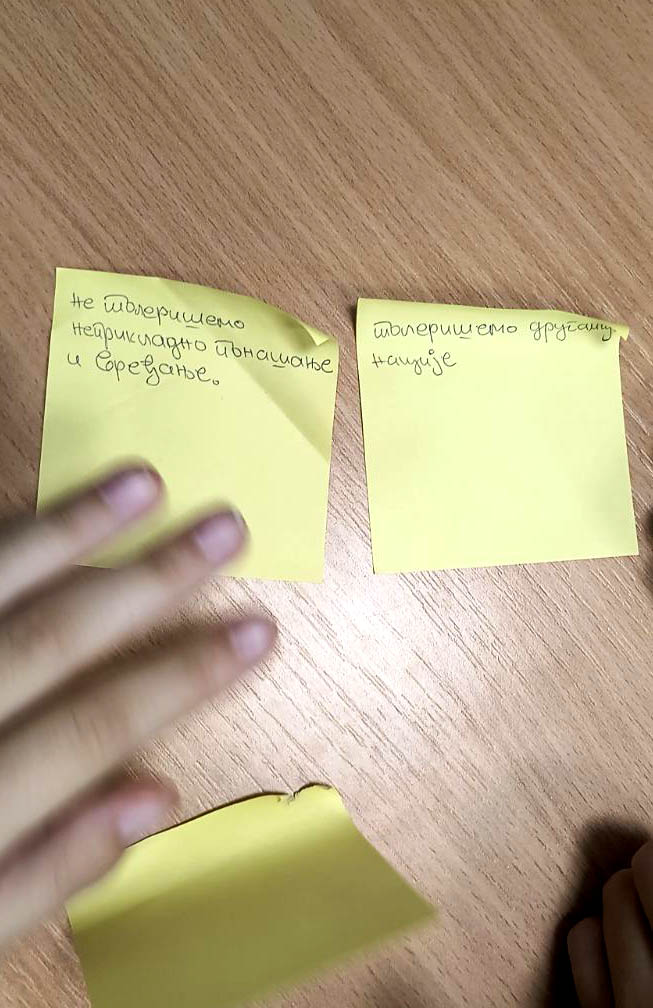 не толеришемо
неприкладно понашање
и вређање.
толеришемо другачију
нације